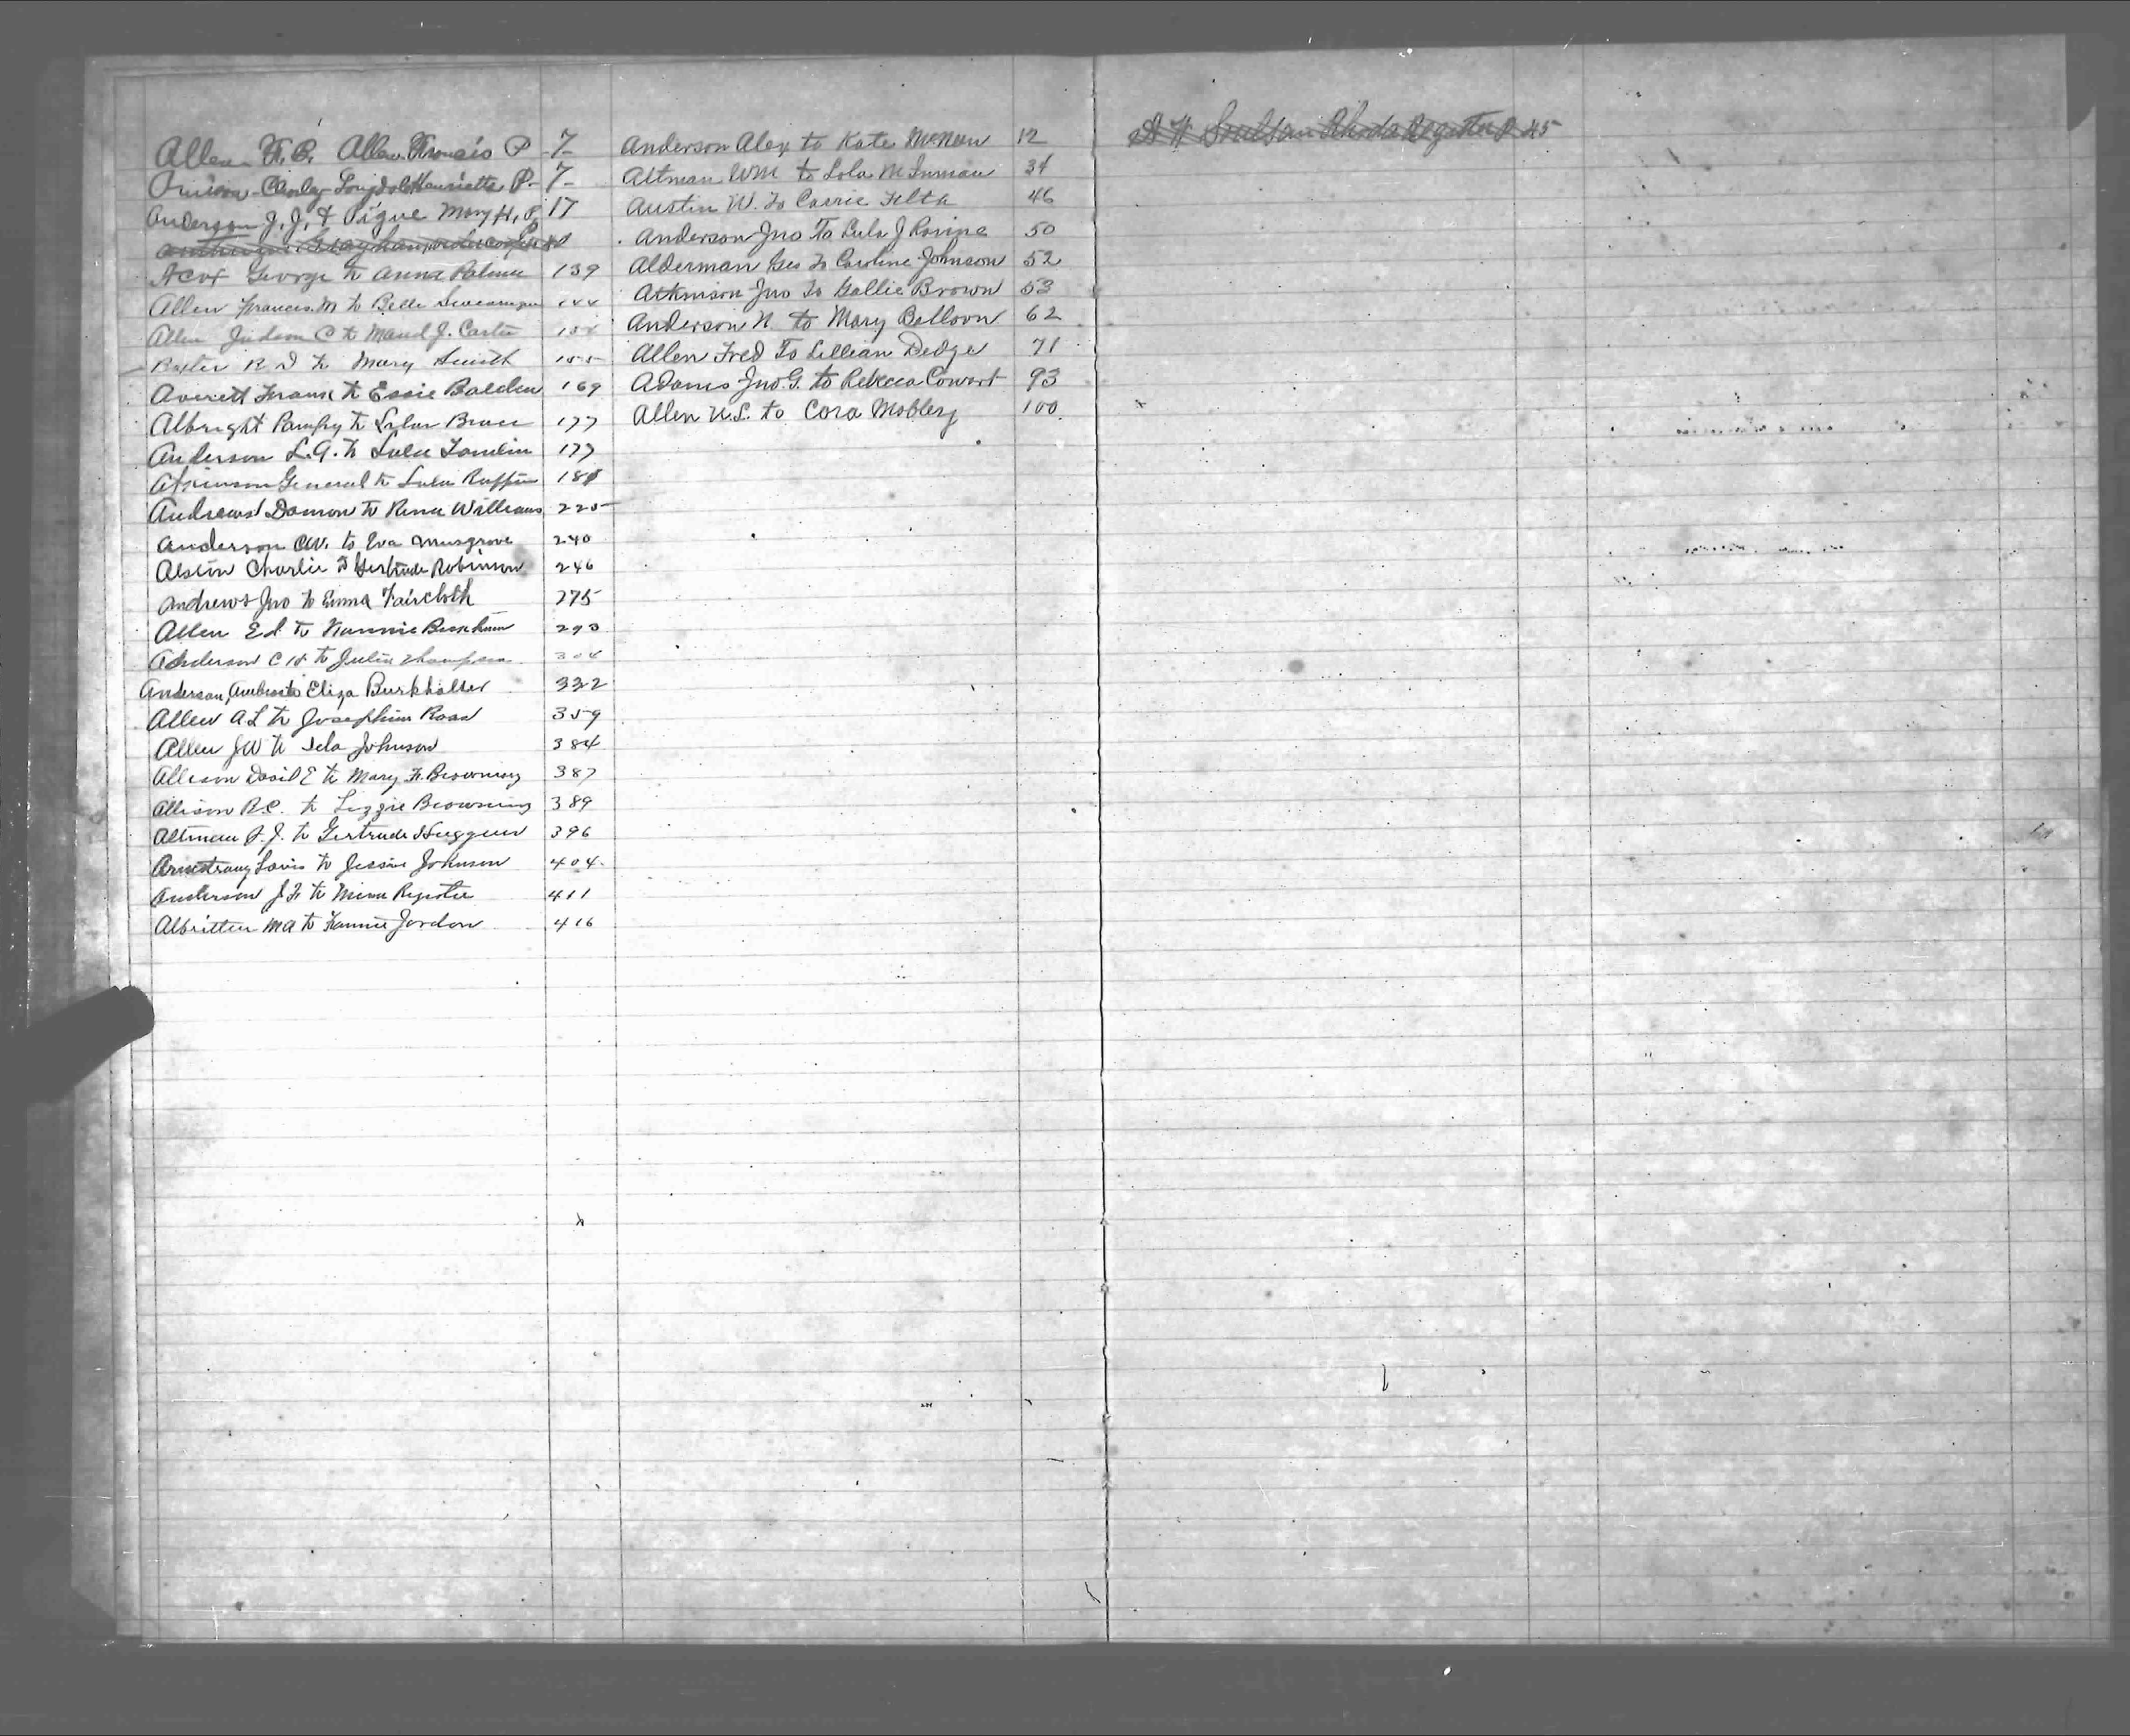 Allen F. B. Allen Francis P 7
Henrietta P. 7
Anderson J. J. & Pigue Mary H. P. 17
Acox George to Anna Palmer 139
Allen Frances M to Belle
Allen Judson C to Maud J. Carter
Baxter R D to Mary Smith 155
Averett Frank to Essie Balden 169
Albright Pamphy to Bruce 177
Anderson L. A. to Lula Tomlin 177
Atkinson General to Lula Ruffin 18
Andrews Damon to Rena Williams 225
Anderson to Eva Musgrove 240
Alston Charlie to Gertrude Robinson 246
Andrews Jno to Emma Faircloth 275
Allen Ed to Nannie 293
Anderson C H to Julia Thompson 304
Anderson, Eliza Burkhalter 332
Allen A L to Josephine Road 359
Allen J W to Johnson 384
Allison David E to Mary F. Browning 387
Allison R. C. to Lizzie Browning 389
Altman J. to Gertrude Huggins 396
Armstrong Louis to Jessie Johnson 404
Anderson J F to Minnie Register 411
Albritten M A to Fannie Jordon 416
Anderson Alex to Kate McNew 12
Altman WM to Lola M Inman 34
Austin W. To Carrie Felta 46
Anderson Jno To Lula J 50
Alderman Geo To Caroline Johnson 52
Atkinson Jno To Gallie Brown 53
Anderson N. to Mary Balloon 62
Allen Fred To Lillian Dedge 71
Adams Jno. G. to Rebecca Cowart 93
Allen U. S. to Cora Mobley 100
Rhoda Register P 45